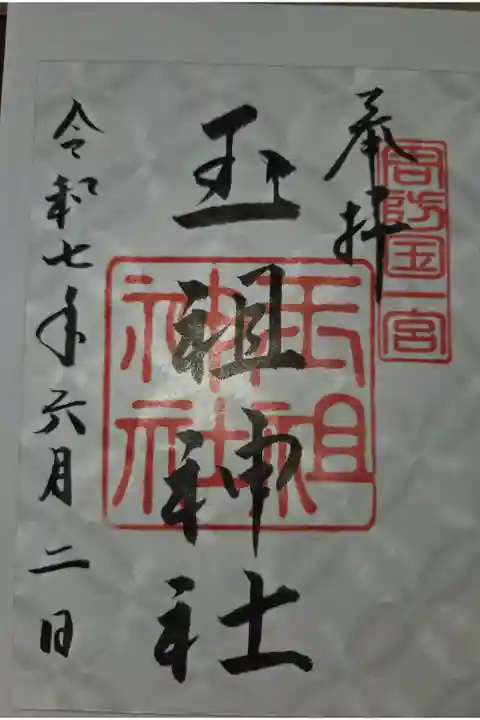 奉拝
周防国一宮
玉祖神社
玉祖神社
令和七年六月二日